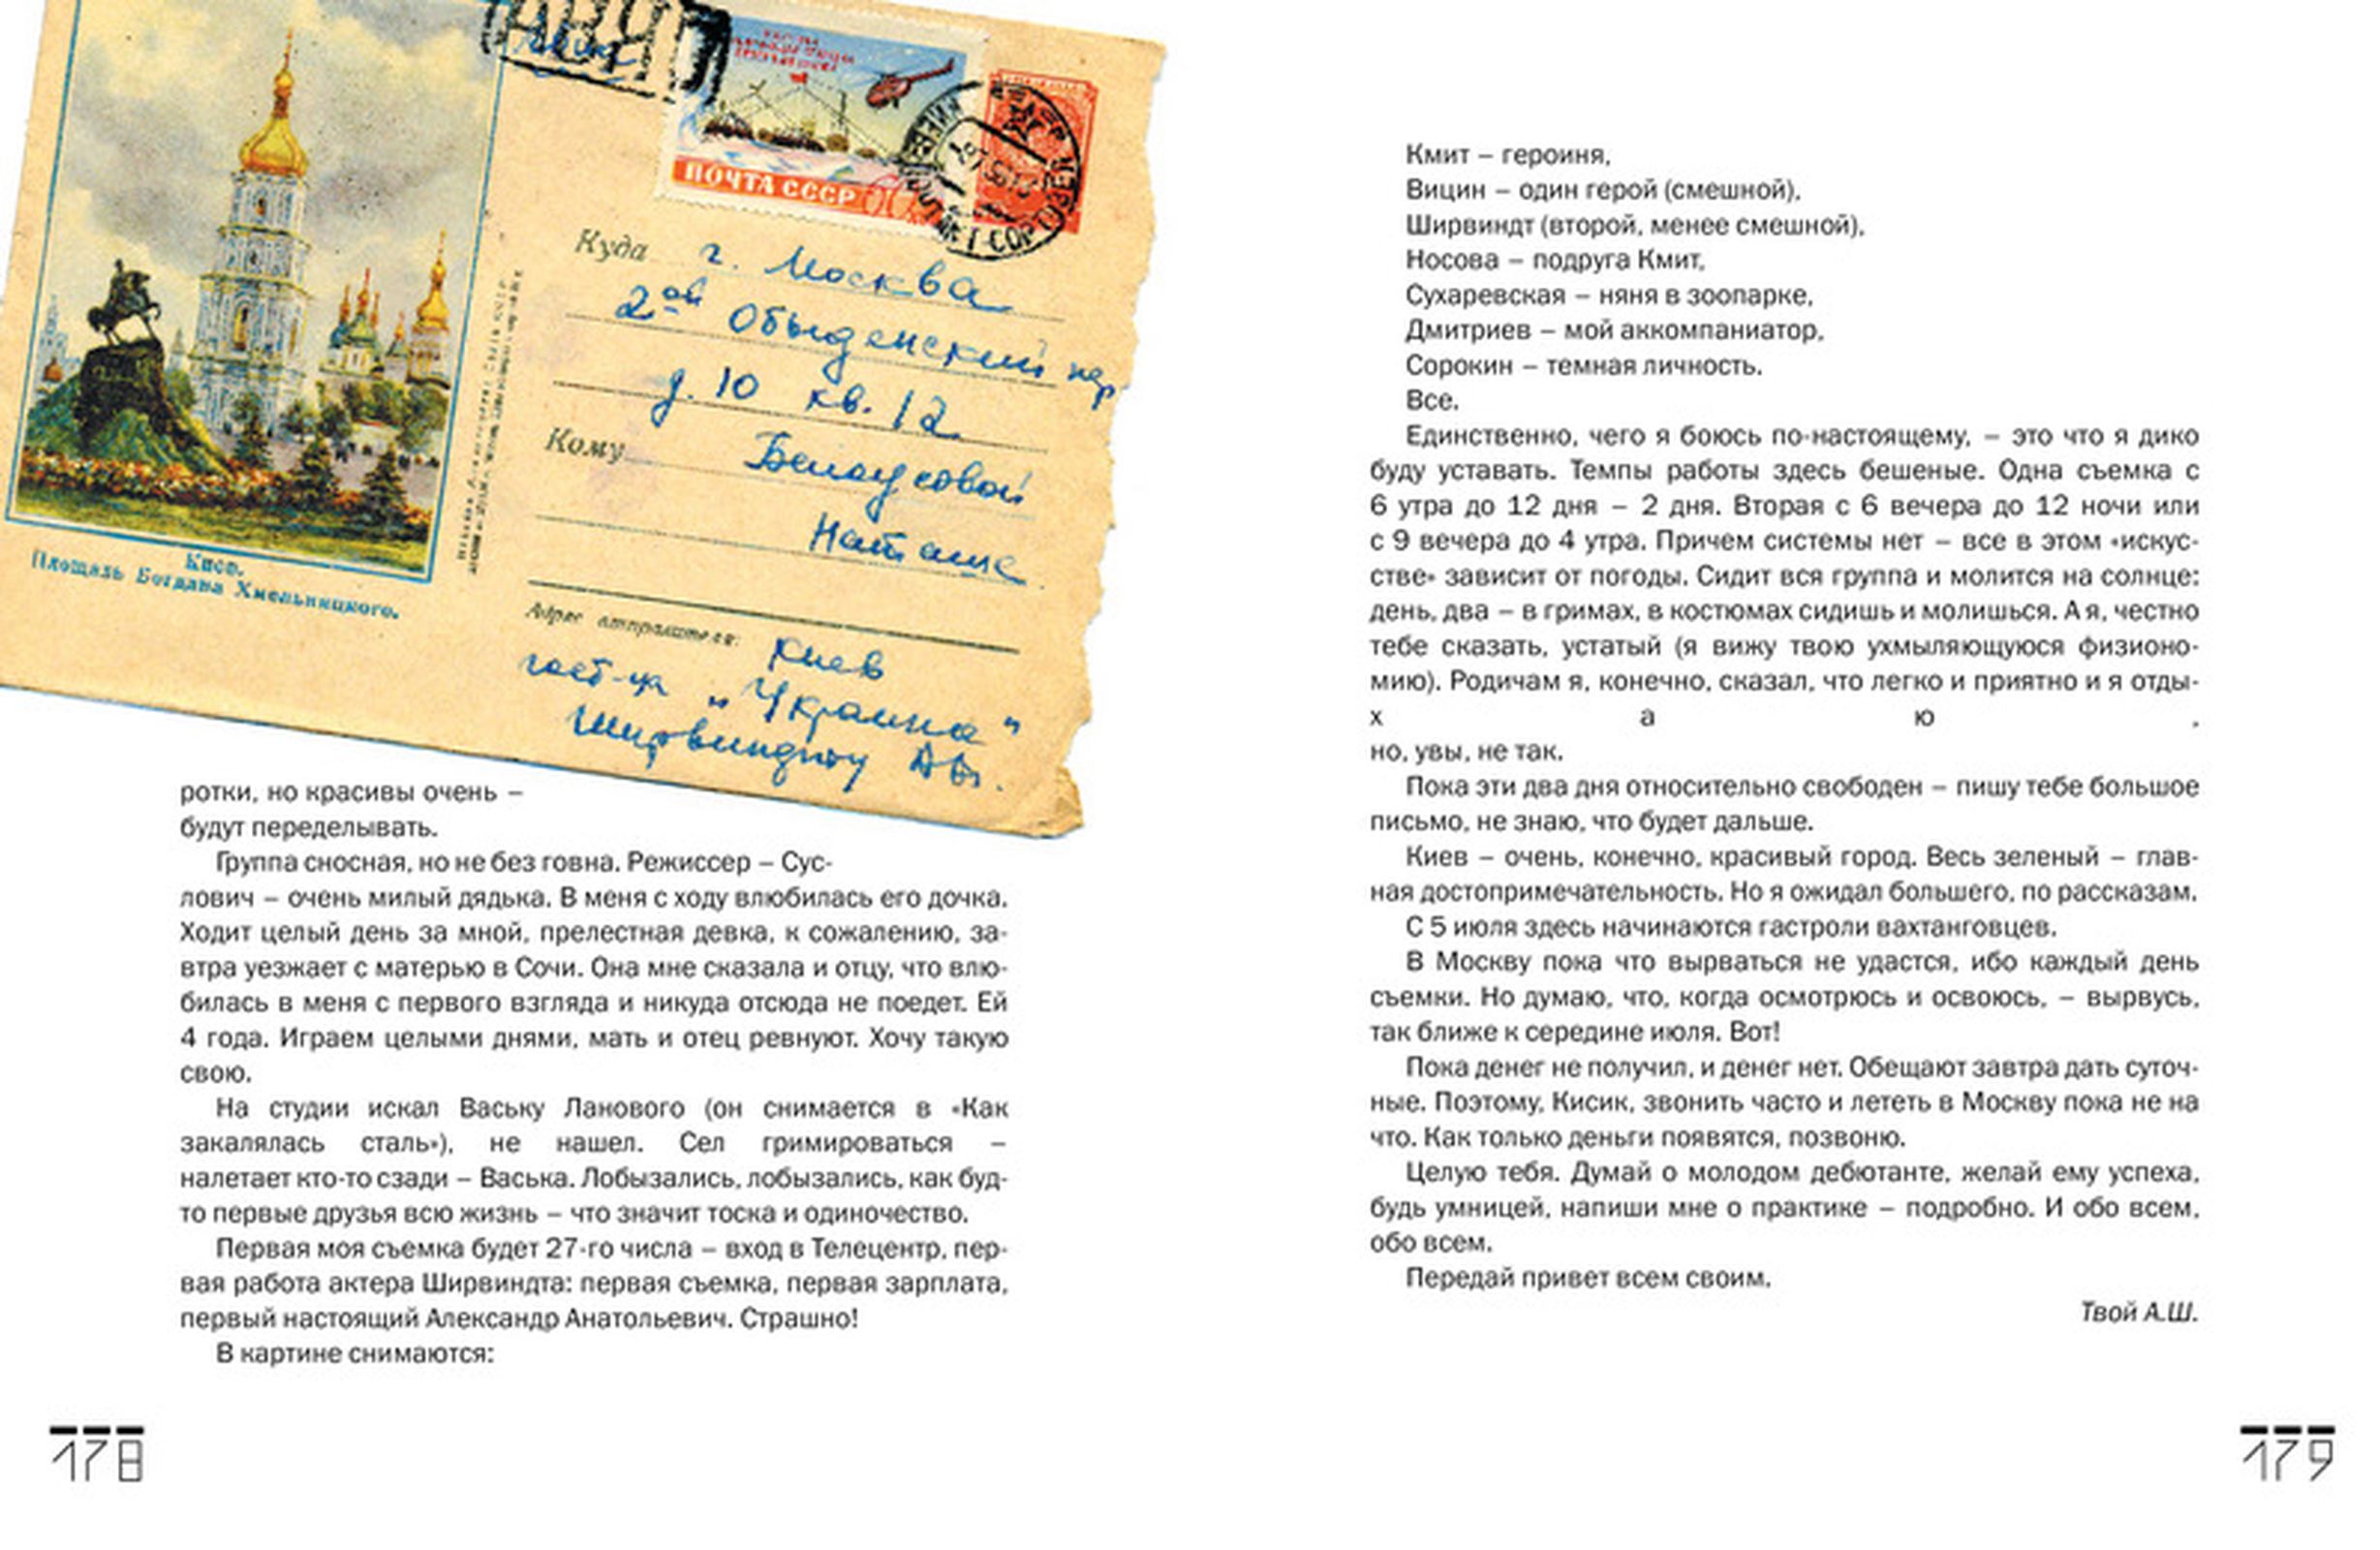 ПОЧТА СССР
Куда г. Москва
2ой Обыденский пер
д. 10 кв. 12
Кому Белоусовой
Наташе
Адрес отправителя: Киев
гост-ца „Украина"
Ширвиндту А.
Киев.
Площадь Богдана Хмельницкого.
ротки, но красивы очень –
будут переделывать.
Группа сносная, но не без говна. Режиссер – Сус-
лович – очень милый дядька. В меня с ходу влюбилась его дочка.
Ходит целый день за мной, прелестная девка, к сожалению, за-
втра уезжает с матерью в Сочи. Она мне сказала и отцу, что влю-
билась в меня с первого взгляда и никуда отсюда не поедет. Ей
4 года. Играем целыми днями, мать и отец ревнуют. Хочу такую
свою.
На студии искал Ваську Ланового (он снимается в «Как
закалялась сталь»), не нашел. Сел гримироваться –
налетает кто-то сзади – Васька. Лобызались, лобызались, как буд-
то первые друзья всю жизнь – что значит тоска и одиночество.
Первая моя съемка будет 27-го числа – вход в Телецентр, пер-
вая работа актера Ширвиндта: первая съемка, первая зарплата,
первый настоящий Александр Анатольевич. Страшно!
В картине снимаются:
178
Кмит – героиня,
Вицин – один герой (смешной),
Ширвиндт (второй, менее смешной),
Носова – подруга Кмит,
Сухаревская – няня в зоопарке,
Дмитриев – мой аккомпаниатор,
Сорокин – темная личность.
Все.
Единственно, чего я боюсь по-настоящему, – это что я дико
буду уставать. Темпы работы здесь бешеные. Одна съемка с
6 утра до 12 дня – 2 дня. Вторая с 6 вечера до 12 ночи или
с 9 вечера до 4 утра. Причем системы нет – все в этом «искус-
стве» зависит от погоды. Сидит вся группа и молится на солнце:
день, два – в гримах, в костюмах сидишь и молишься. А я, честно
тебе сказать, устатый (я вижу твою ухмыляющуюся физионо-
мию). Родичам я, конечно, сказал, что легко и приятно и я отды-
х а ю ,
но, увы, не так.
Пока эти два дня относительно свободен – пишу тебе большое
письмо, не знаю, что будет дальше.
Киев – очень, конечно, красивый город. Весь зеленый – глав-
ная достопримечательность. Но я ожидал большего, по рассказам.
С 5 июля здесь начинаются гастроли вахтанговцев.
В Москву пока что вырваться не удастся, ибо каждый день
съемки. Но думаю, что, когда осмотрюсь и освоюсь, – вырвусь,
так ближе к середине июля. Вот!
Пока денег не получил, и денег нет. Обещают завтра дать суточ-
ные. Поэтому, Кисик, звонить часто и лететь в Москву пока не на
что. Как только деньги появятся, позвоню.
Целую тебя. Думай о молодом дебютанте, желай ему успеха,
будь умницей, напиши мне о практике – подробно. И обо всем,
обо всем.
Передай привет всем своим.
Твой А.Ш.
179